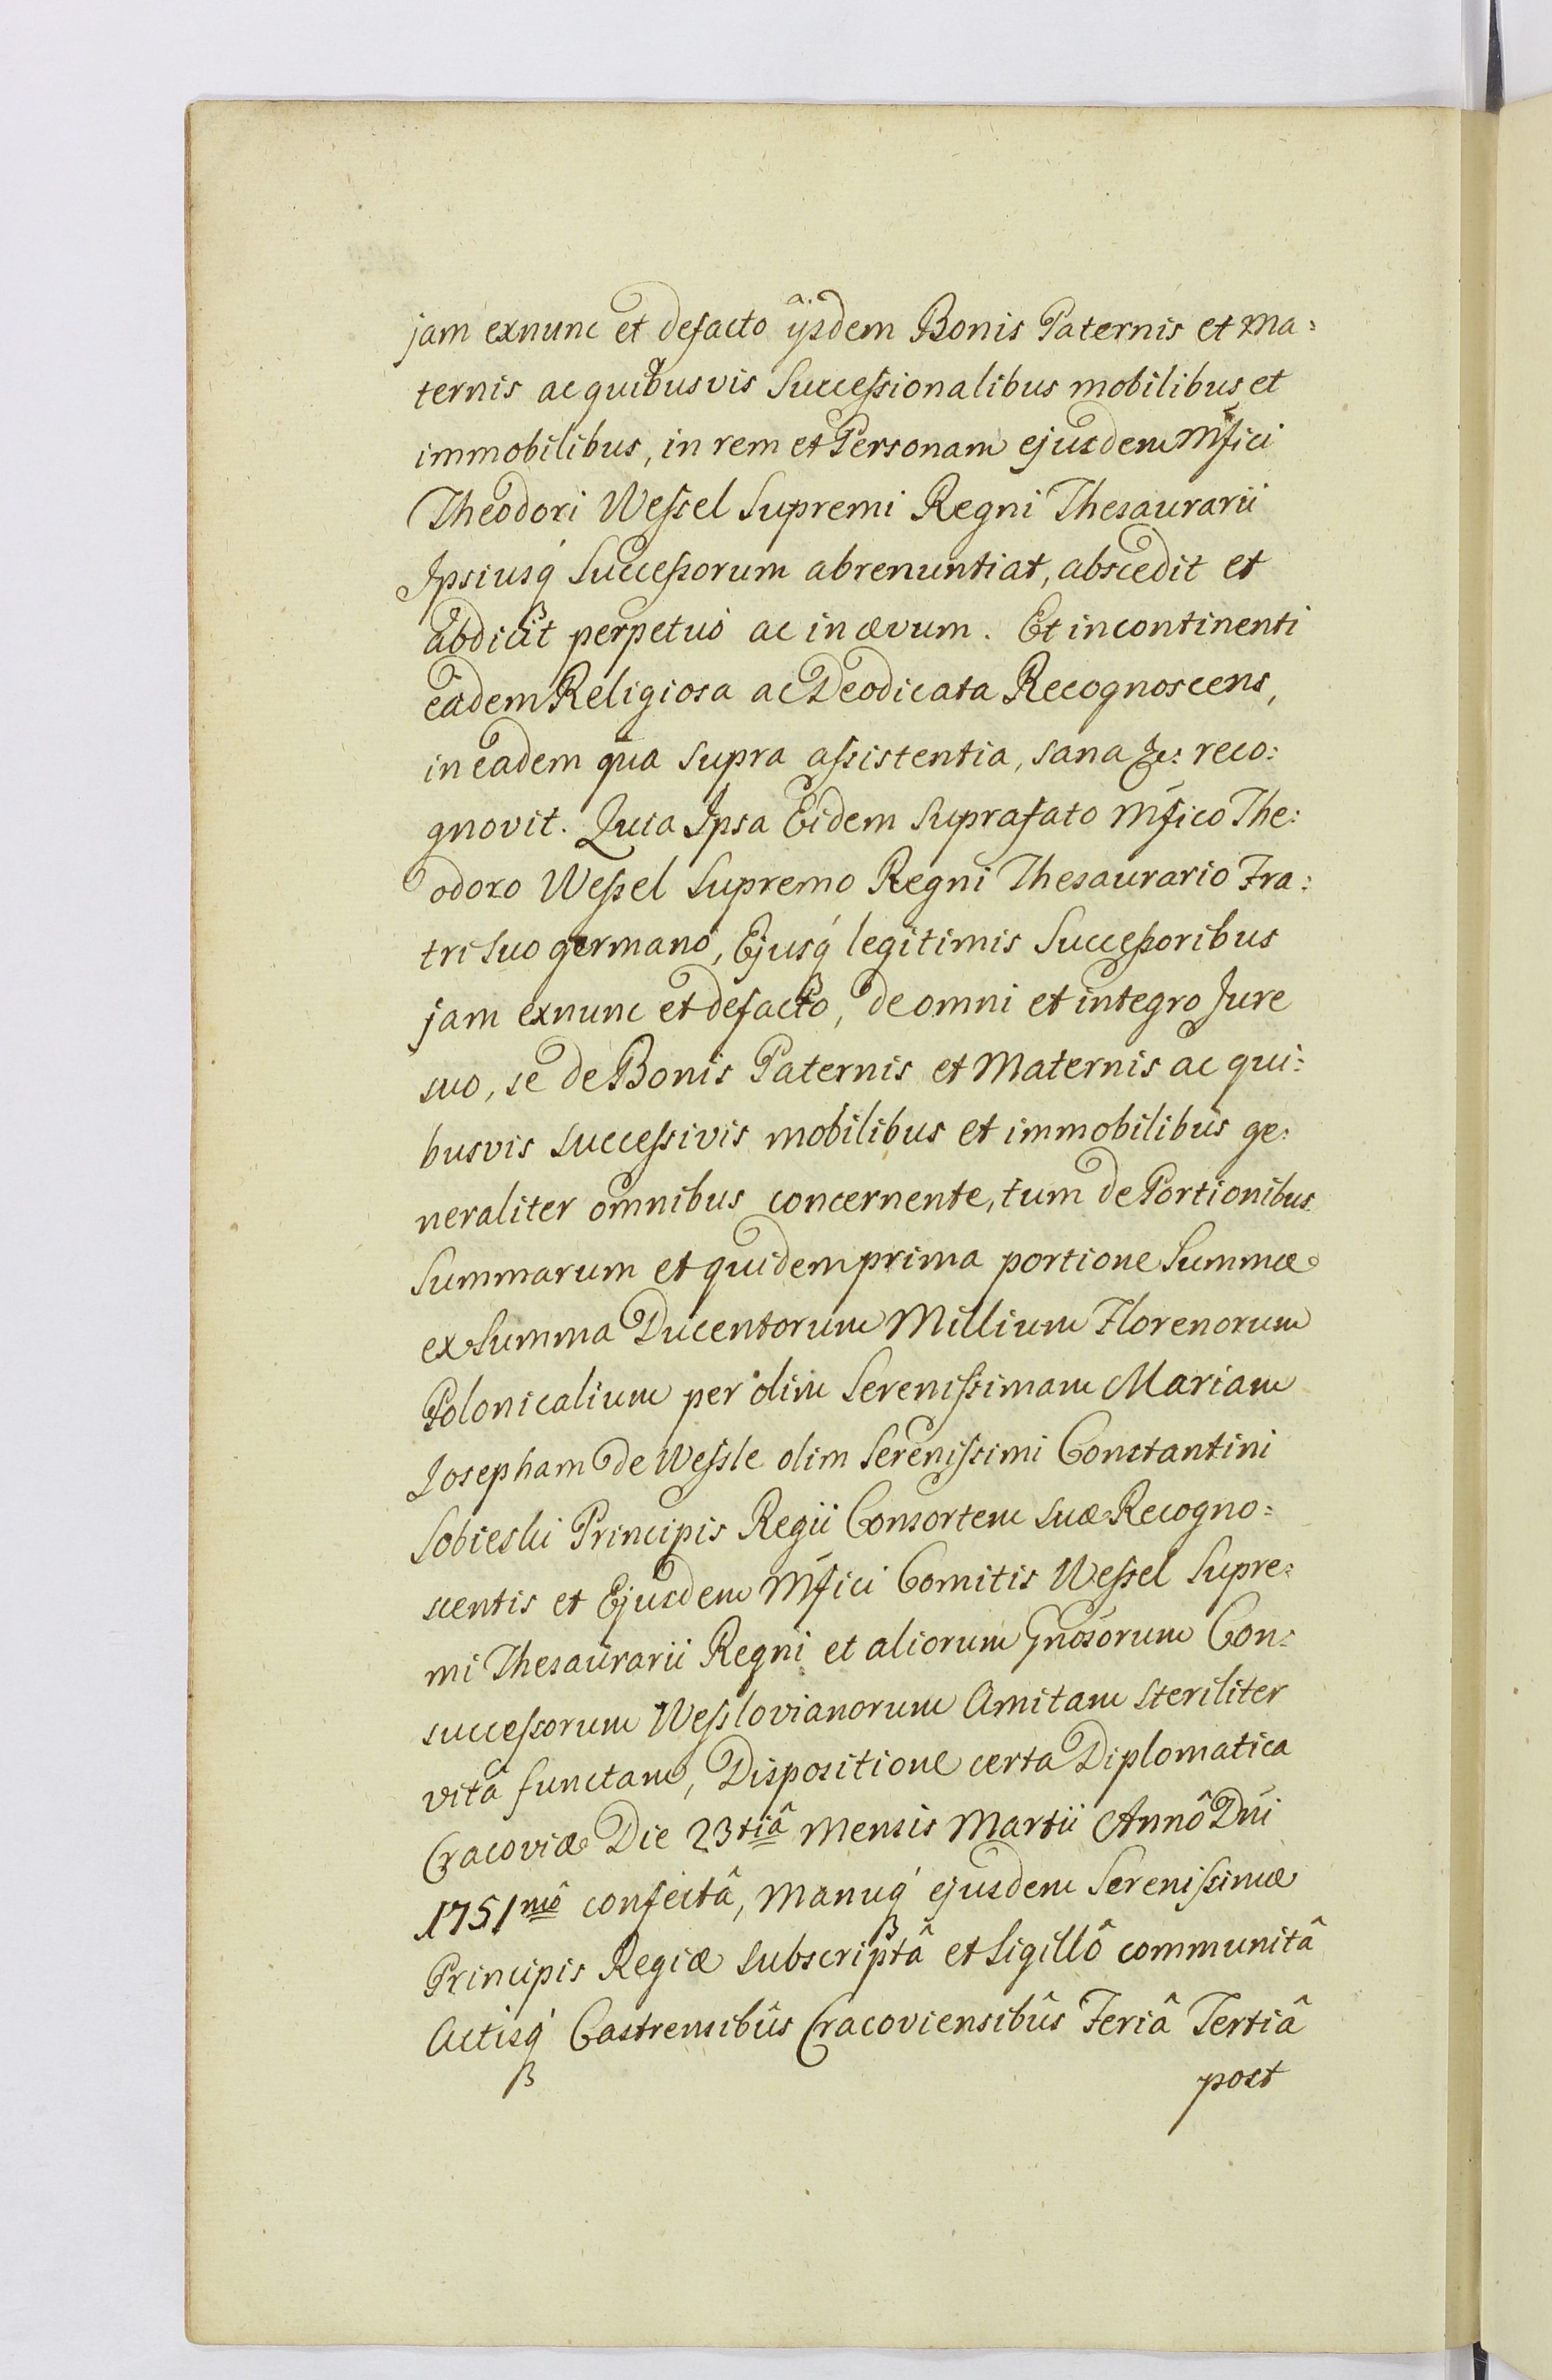 jam exnunc et defacto ijsdem Bonis Paternis et Ma:
ternis ac quibusvis Successionalibus mobilibus et
immobilibus, in rem et Personam ejusdem Mfici
Theodori Wessel Supremi Regni Thesaurarii
Ipsiusq́ Successorum abrenuntiat, abscedit et
abdicit perpetuò ac in ævum. Et incontinenti
eadem Religiosa ac Deodicata Recognoscens,
in eadem qua supra assistentia, sana &c: reco:
gnovit. Quia Ipsa Eidem Suprafato Mfico The:
odoro Wessel Supremo Regni Thesaurario Fra:
tri suo germano, Ejusq́ legitimis Successoribus
jam exnunc et defacto, de omni et integro Jure
suo, se de Bonis Paternis et Maternis ac qui:
busvis successivis mobilibus et immobilibus ge:
neraliter omnibus concernente, tum de Portionibus
Summarum et quidem prima portione Summæ
ex Summa Ducentorum Millium Florenorum
Polonicalium per olim Serenissimam Mariam
Josepham de Wessle olim Serenissimi Constantini
Sobieski Principis Regii Consortem suæ Recogno:
scentis et Ejusdem Mfici Comitis Wessel Supre:
mi Thesaurarii Regni et aliorum Gnosorum Con:
successorum Wesslovianorum Amitam steriliter
vitâ functam, Dispositione certa Diplomatica
Cracoviæ Die 23tiâ Mensis Martii Annô Dni
1751mô confectâ, Manuq́ ejusdem Serenissimæ
Principis Regiæ subscriptâ et Sigillô communitâ
Actisq́ Castrensibûs Cracoviensibûs Feriâ Tertiâ
post